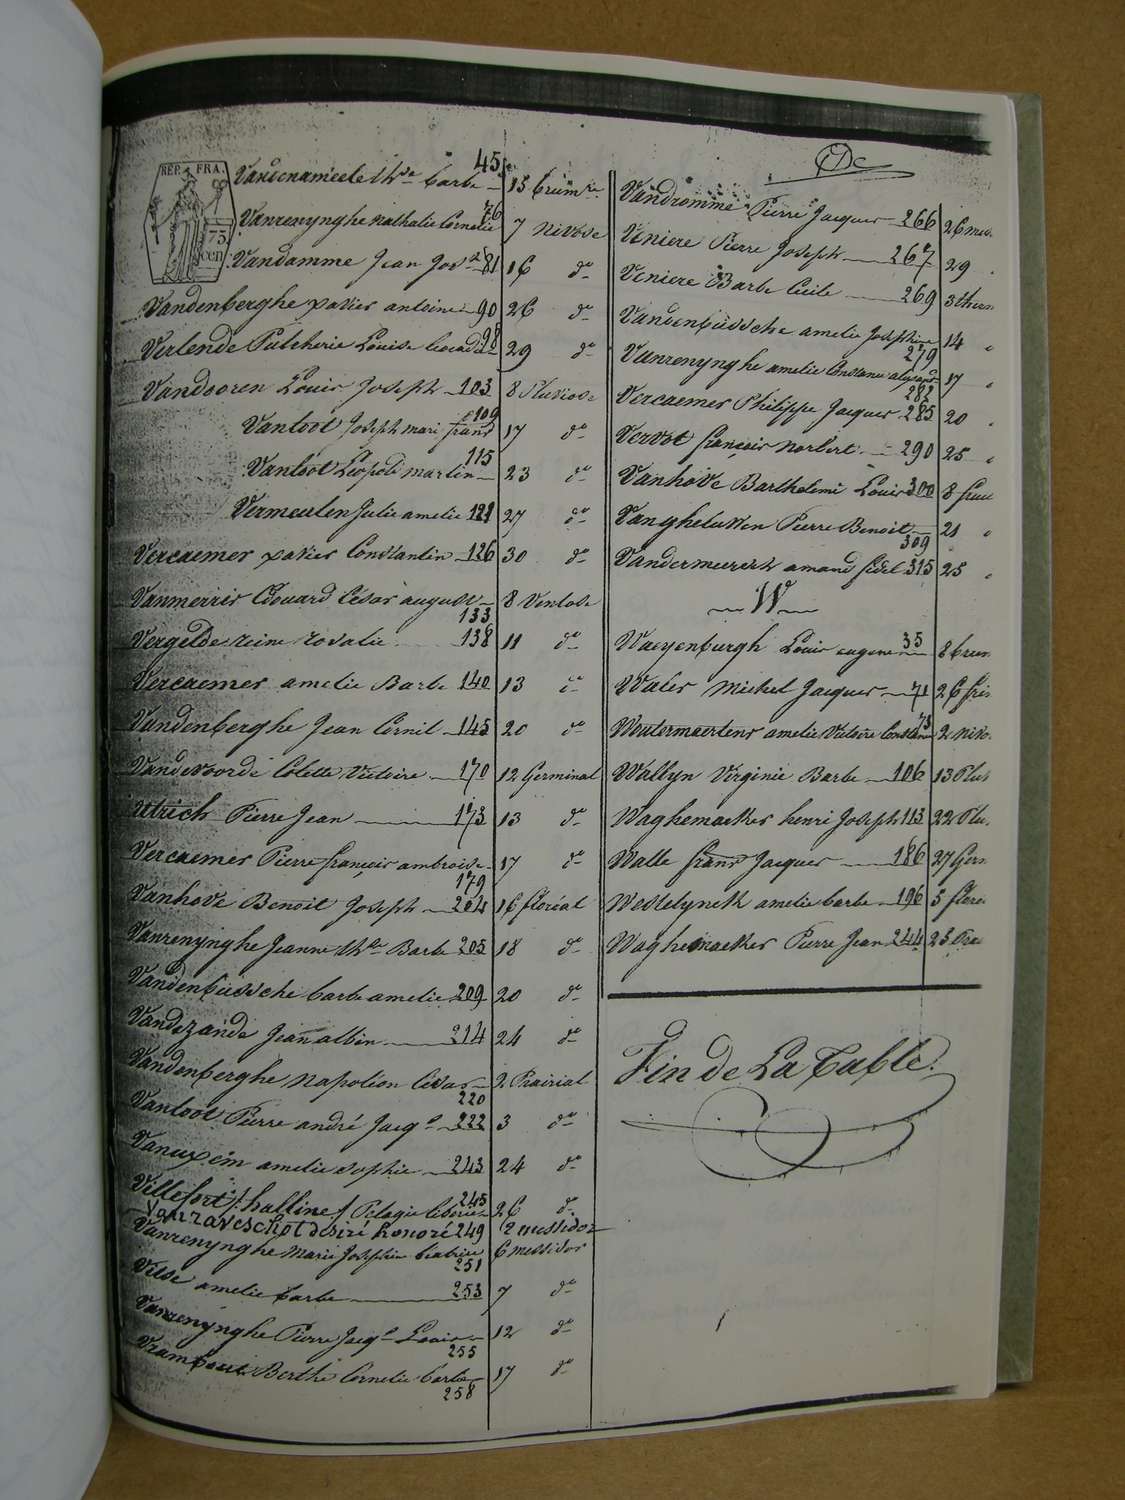 REP. FRA.
75
cen
45
Barbe 13 brum.re
Vanrenynghe nathalie Cornelie 76 7 nivose
Vandamme Jean Jos. 81 16 do
Vandenberghe xavier antoine 90 26 do
Verlende Pulcherie Louise 98 29 do
Vandooren Louis Joseph 103 8 Pluviose
Vanloot Joseph mari frans 109 17 do
Vanloot Leopold martin 115 23 do
Vermeulen Julie amelie 121 27 do
Vercaemer xavier Constantin 126 30 do
Vanmerris Edouard Cesar august 133 8 Ventose
Vergelde reine rosalie 138 11 do
Vercaemer amelie Barbe 140 13 do
Vandenberghe Jean Cornil 145 20 do
Vandevoorde Colette Victoire 170 12 Germinal
Utrich Pierre Jean 173 13 do
Vercaemer Pierre françois ambroise 179 17 do
Vanhove Benoit Joseph 204 16 floréal
Vanrenynghe Jeanne th.se Barbe 205 18 do
Vandenbussche barbe amelie 209 20 do
Vandezande Jean albin 214 24 do
Vandenberghe napoléon Cesar 220 2 Prairial
Vanloot Pierre andré Jacq.s 222 3 do
Vanuxem amelie sophie 243 24 do
Villefort /: halline / Pelagie 245 26 do
Vanraveschot desiré honoré 249 (2 messidor
Vanrenynghe Marie Josephine 251 6 messidor
Vilse amelie barbe 253 7 do
Vanrenynghe Pierre Jacq.s Louis 255 12 do
Vrambout Berthe Cornelie barbe 258 17 do
Vandromme Pierre Jacques 266 26 mes
Veniere Pierre Joseph 267 29
Veniere Barbe Cecile 269 3 therm
Vandenbussche amelie Josephine 279 14
Vanrenynghe amelie Constance 282 17
Vercaemer Philippe Jacques 285 20
Vervot françois norbert 290 25
Vanhove Barthelemi Louis 300 8 fruc
Vangheluwen Pierre Benoit 309 21
Vandermeersch amand fidel 315 25
W
Waeyenburgh Louis eugene 35 8 brum
Wales Michel Jacques 71 26 fri
Woutermaertens amelie Victoire Constance 73 2 nivo
Wallyn Virginie Barbe 106 13 Plu
Waghemacker henri Joseph 113 22 Plu
Walle frans Jacques 186 27 Germ
Westelynck amelie barbe 196 5 flore
Waghemaeker Pierre Jean 244 25 Prai
Fin de La Table.